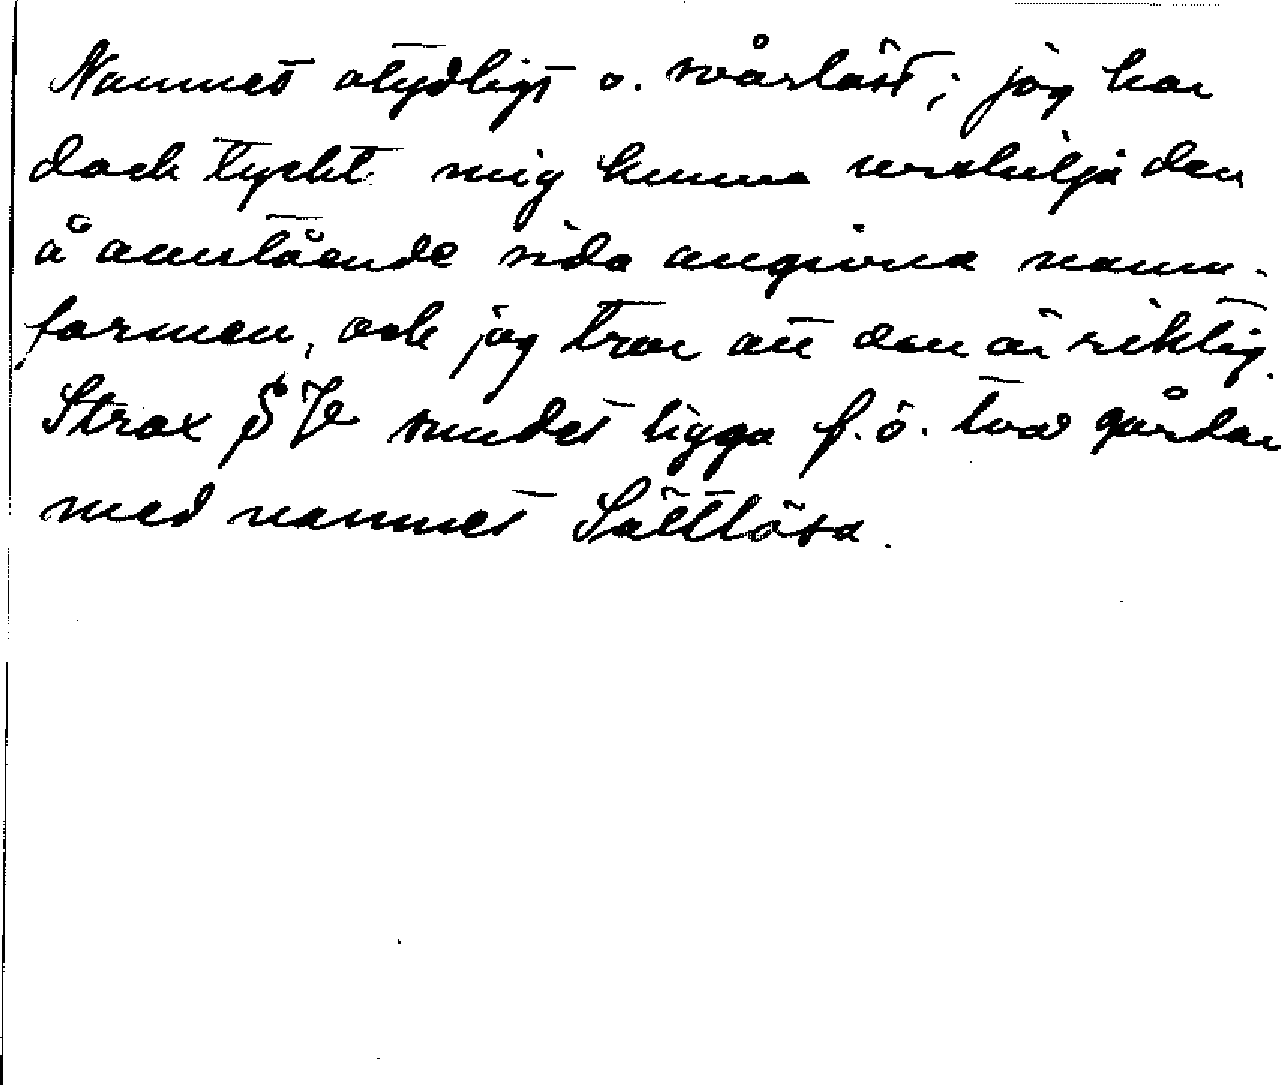 Namnet otydligt o. svårläst; jag har
dock tyckt mig kunna urskilja den
å omstående sida angivna namn-
formen, och jag tror att den är riktig.
Strax S Ve sundet ligga f.ö. två gårdar
med namnet Sättlösa.